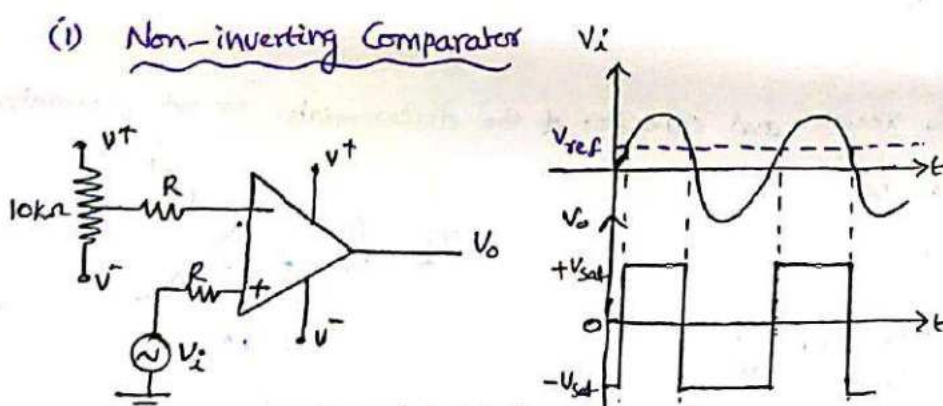 (i) Non-inverting Comparator
Vi
V+
10kΩ
V-
R
-
R
+
Vi
V+
V-
Vo
Vref
t
Vo
+Vsat
0
t
-Vsat